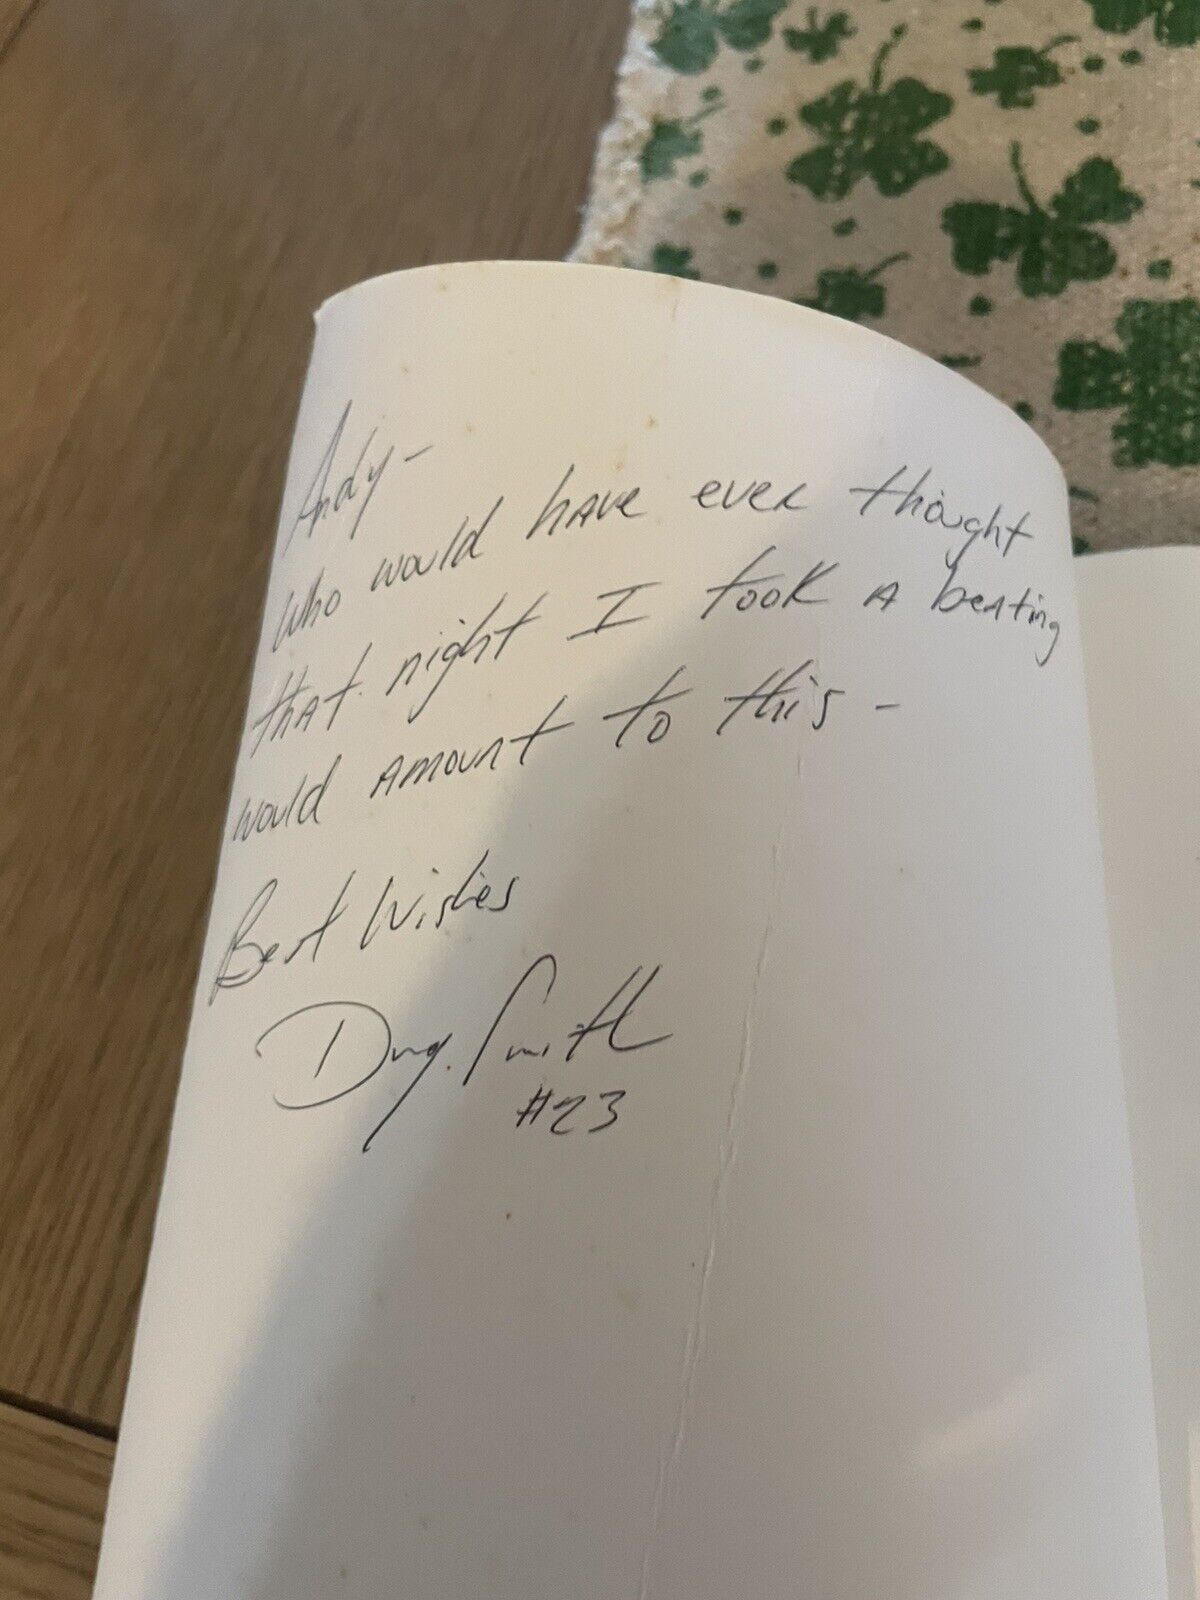 Andy-
Who would have ever thought
that night I took a beating
would amount to this -
Best Wishes
Doug Smith
#23